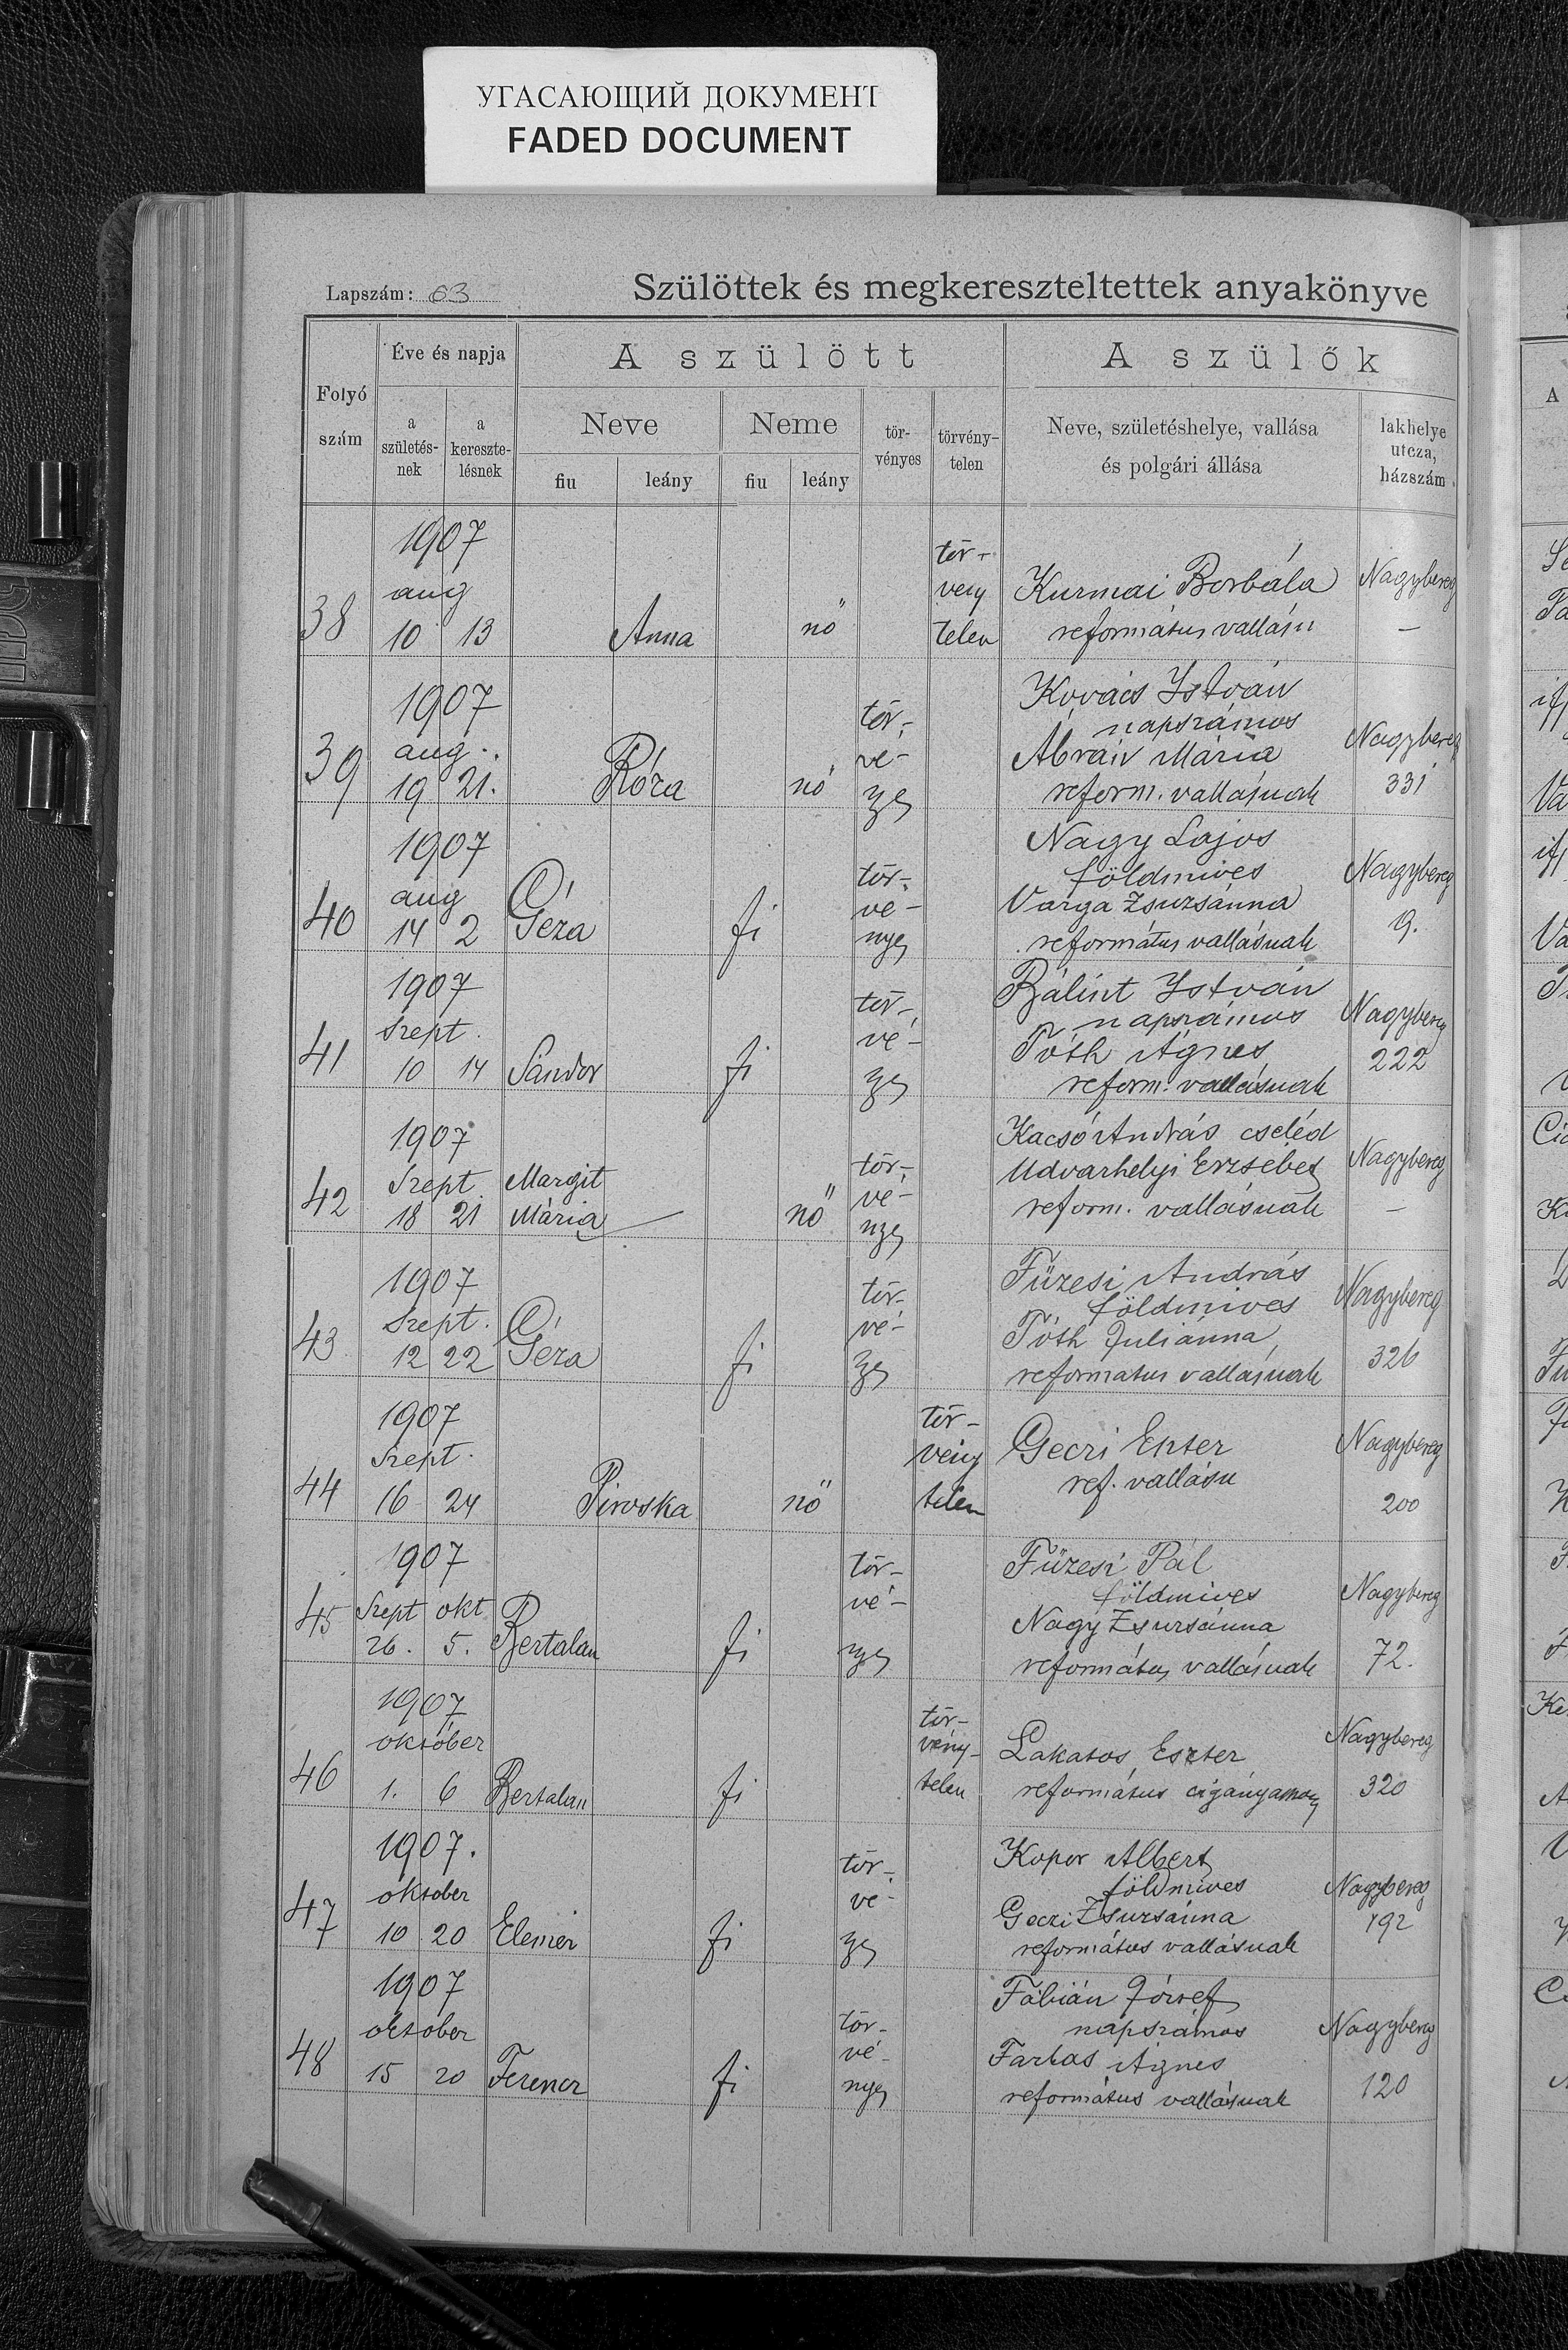 УГАСАЮЩИЙ ДОКУМЕНТ
FADED DOCUMENT
Lapszám: 63
Szülöttek és megkereszteltettek anyakönyve
Folyó szám
Éve és napja
a születés-nek
a kereszte-lésnek
A szülött
Neve
fiu
leány
Neme
fiu
leány
tör-vényes
törvény-telen
A szülők
Neve, születéshelye, vallása
és polgári állása
lakhelye
utcza,
házszám
A
38
1907
aug
10 13
Anna
nő
tör-
vény
telen
Kurmai Borbála
református vallásu
Nagybereg
—
39
1907
aug.
19 21.
Róza
nő
tör-
vé-
yes
Kovács István
napszámos
Ábrán Mária
reform. vallásuak
Nagybereg
331
40
1907
aug
14 2
Géza
fi
tör-
vé-
nyes
Nagy Lajos
földmives
Varga Zsuzsánna
református vallásuak
Nagybereg
9.
41
1907
Szept.
10 14
Sándor
fi
tör-
vé-
yes
Bálint István
napszámos
Tóth Ágnes
reform. vallásuak
Nagybereg
222
42
1907
Szept.
18 21
Margit
Mária
nő
tör-
vé-
nyes
Kacsó András cseléd
Udvarhelyi Erzsébet
reform. vallásuak
Nagybereg
—
43
1907
Szept.
12 22
Géza
fi
tör-
vé-
yes
Füzesi András
földmives
Tóth Juliánna
református vallásuak
Nagybereg
326
44
1907
Szept.
16 24
Piroska
nő
tör-
vény
telen
Geczi Eszter
ref. vallásu
Nagybereg
200
45
1907
Szept okt
26. 5.
Bertalan
fi
tör-
vé-
nyes
Füzesi Pál
földmives
Nagy Zsuzsánna
református vallásuak
Nagybereg
72.
46
1907
október
1. 6
Bertalan
fi
tör-
vény-
telen
Lakatos Eszter
református
Nagybereg
320
47
1907.
október
10 20
Elemér
fi
tör-
vé-
yes
Kopor Albert
földmives
Geczi Zsuzsánna
református vallásuak
Nagybereg
192
48
1907
október
15 20
Ferencz
fi
tör-
vé-
nyes
Fábián József
napszámos
Farkas Ágnes
református vallásuak
Nagybereg
120